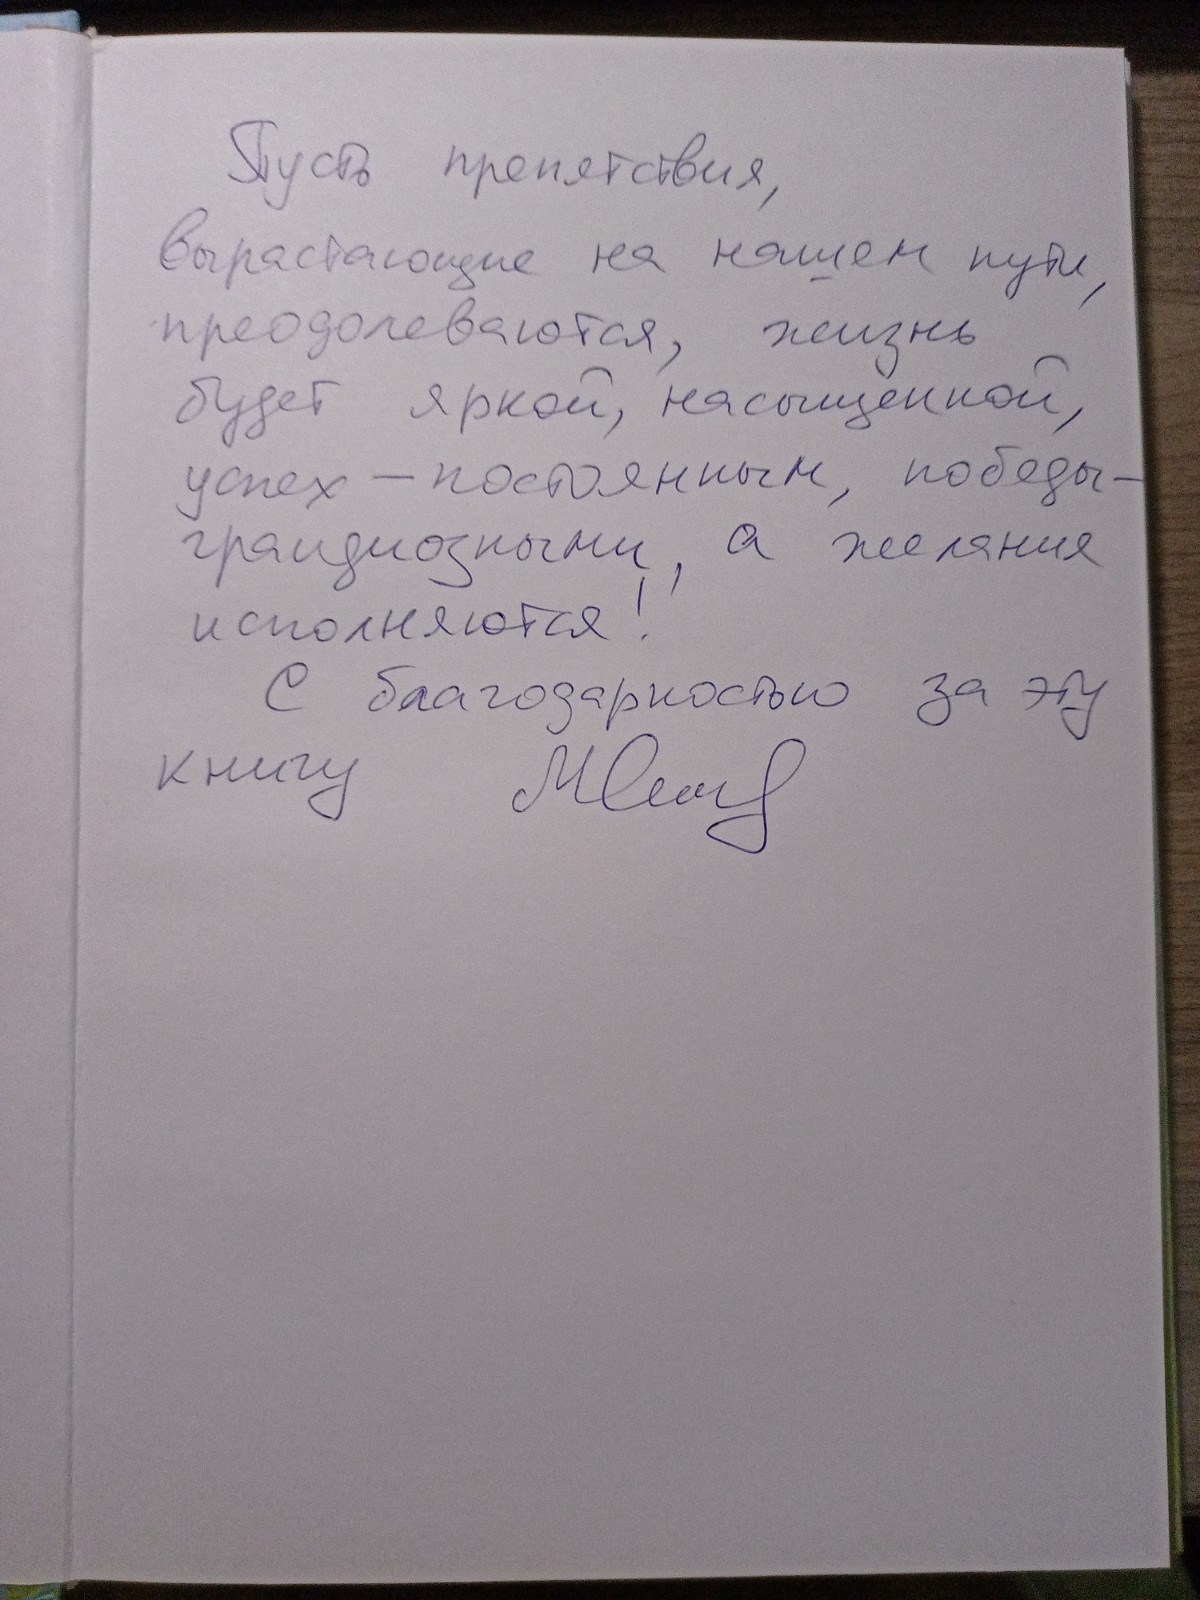 Пусть препятствия,
вырастающие на нашем пути,
преодолеваются, жизнь
будет яркой, насыщенной,
успех — постоянным, победы —
грандиозными, а желания
исполняются!
С благодарностью за эту
книгу